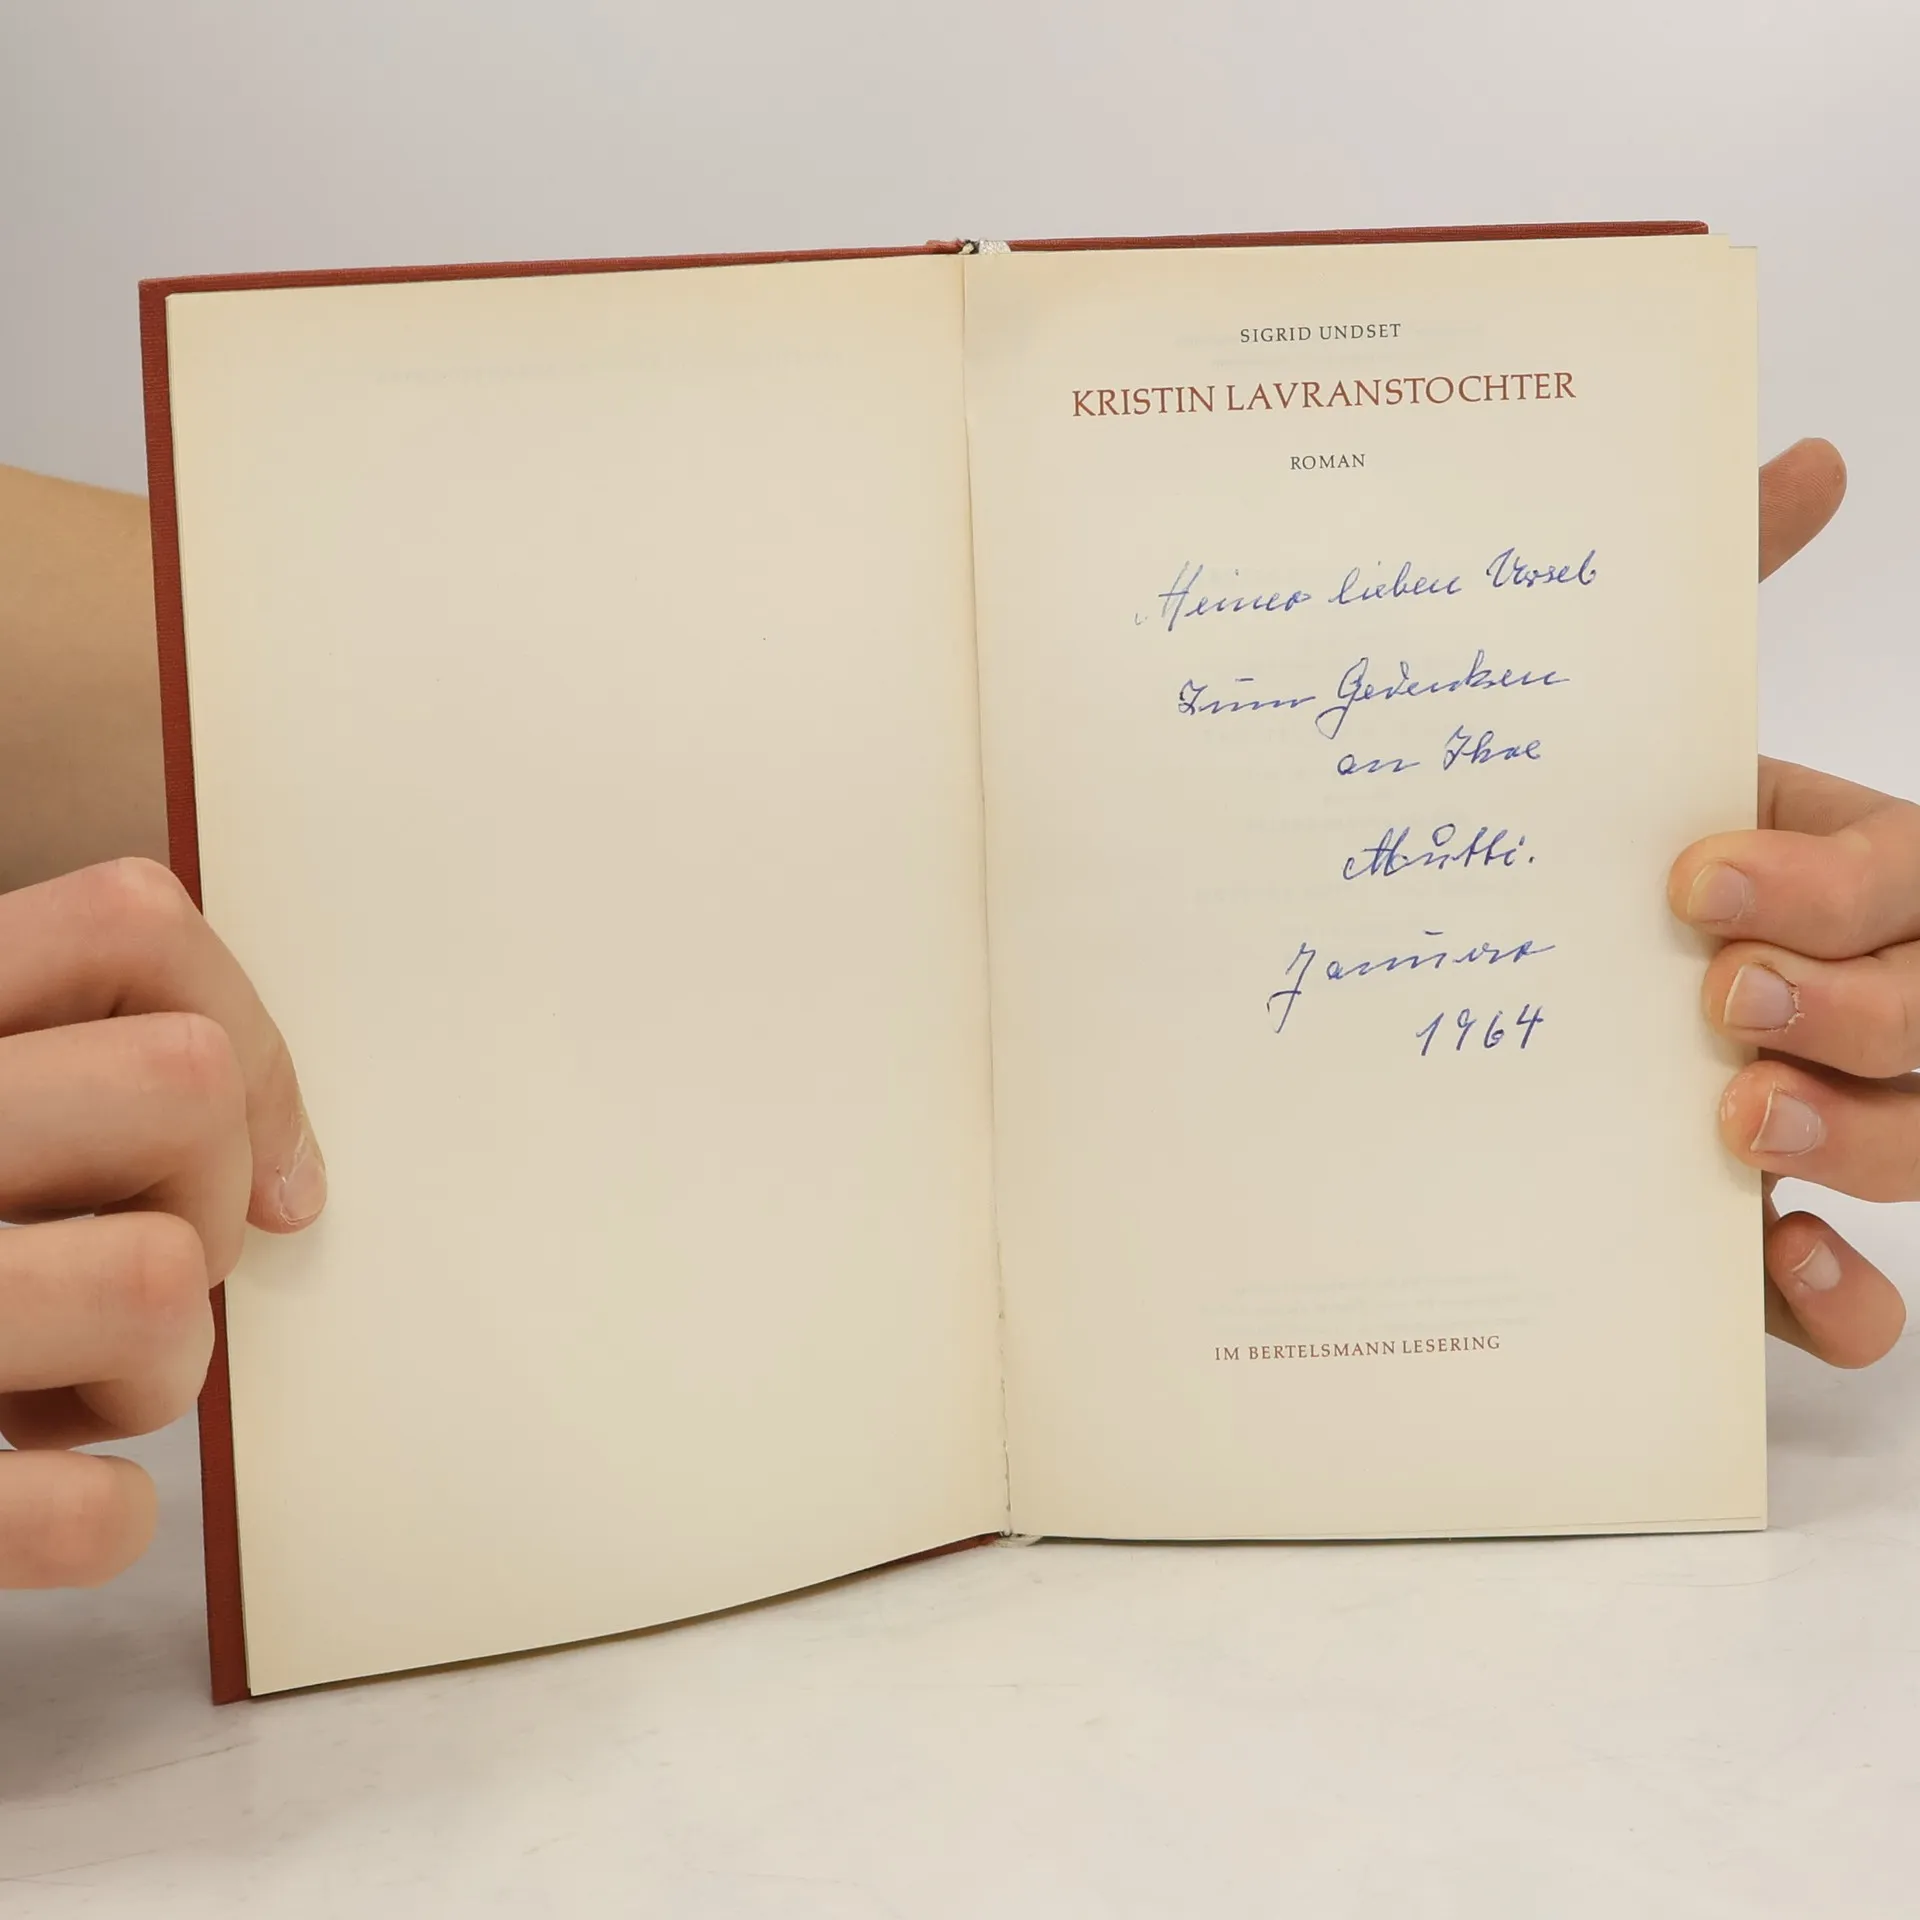 SIGRID UNDSET
KRISTIN LAVRANSTOCHTER
ROMAN
Meiner lieben Ursel
zum Gedenken
an Ihre
Mutti.
Januar
1964
IM BERTELSMANN LESERING